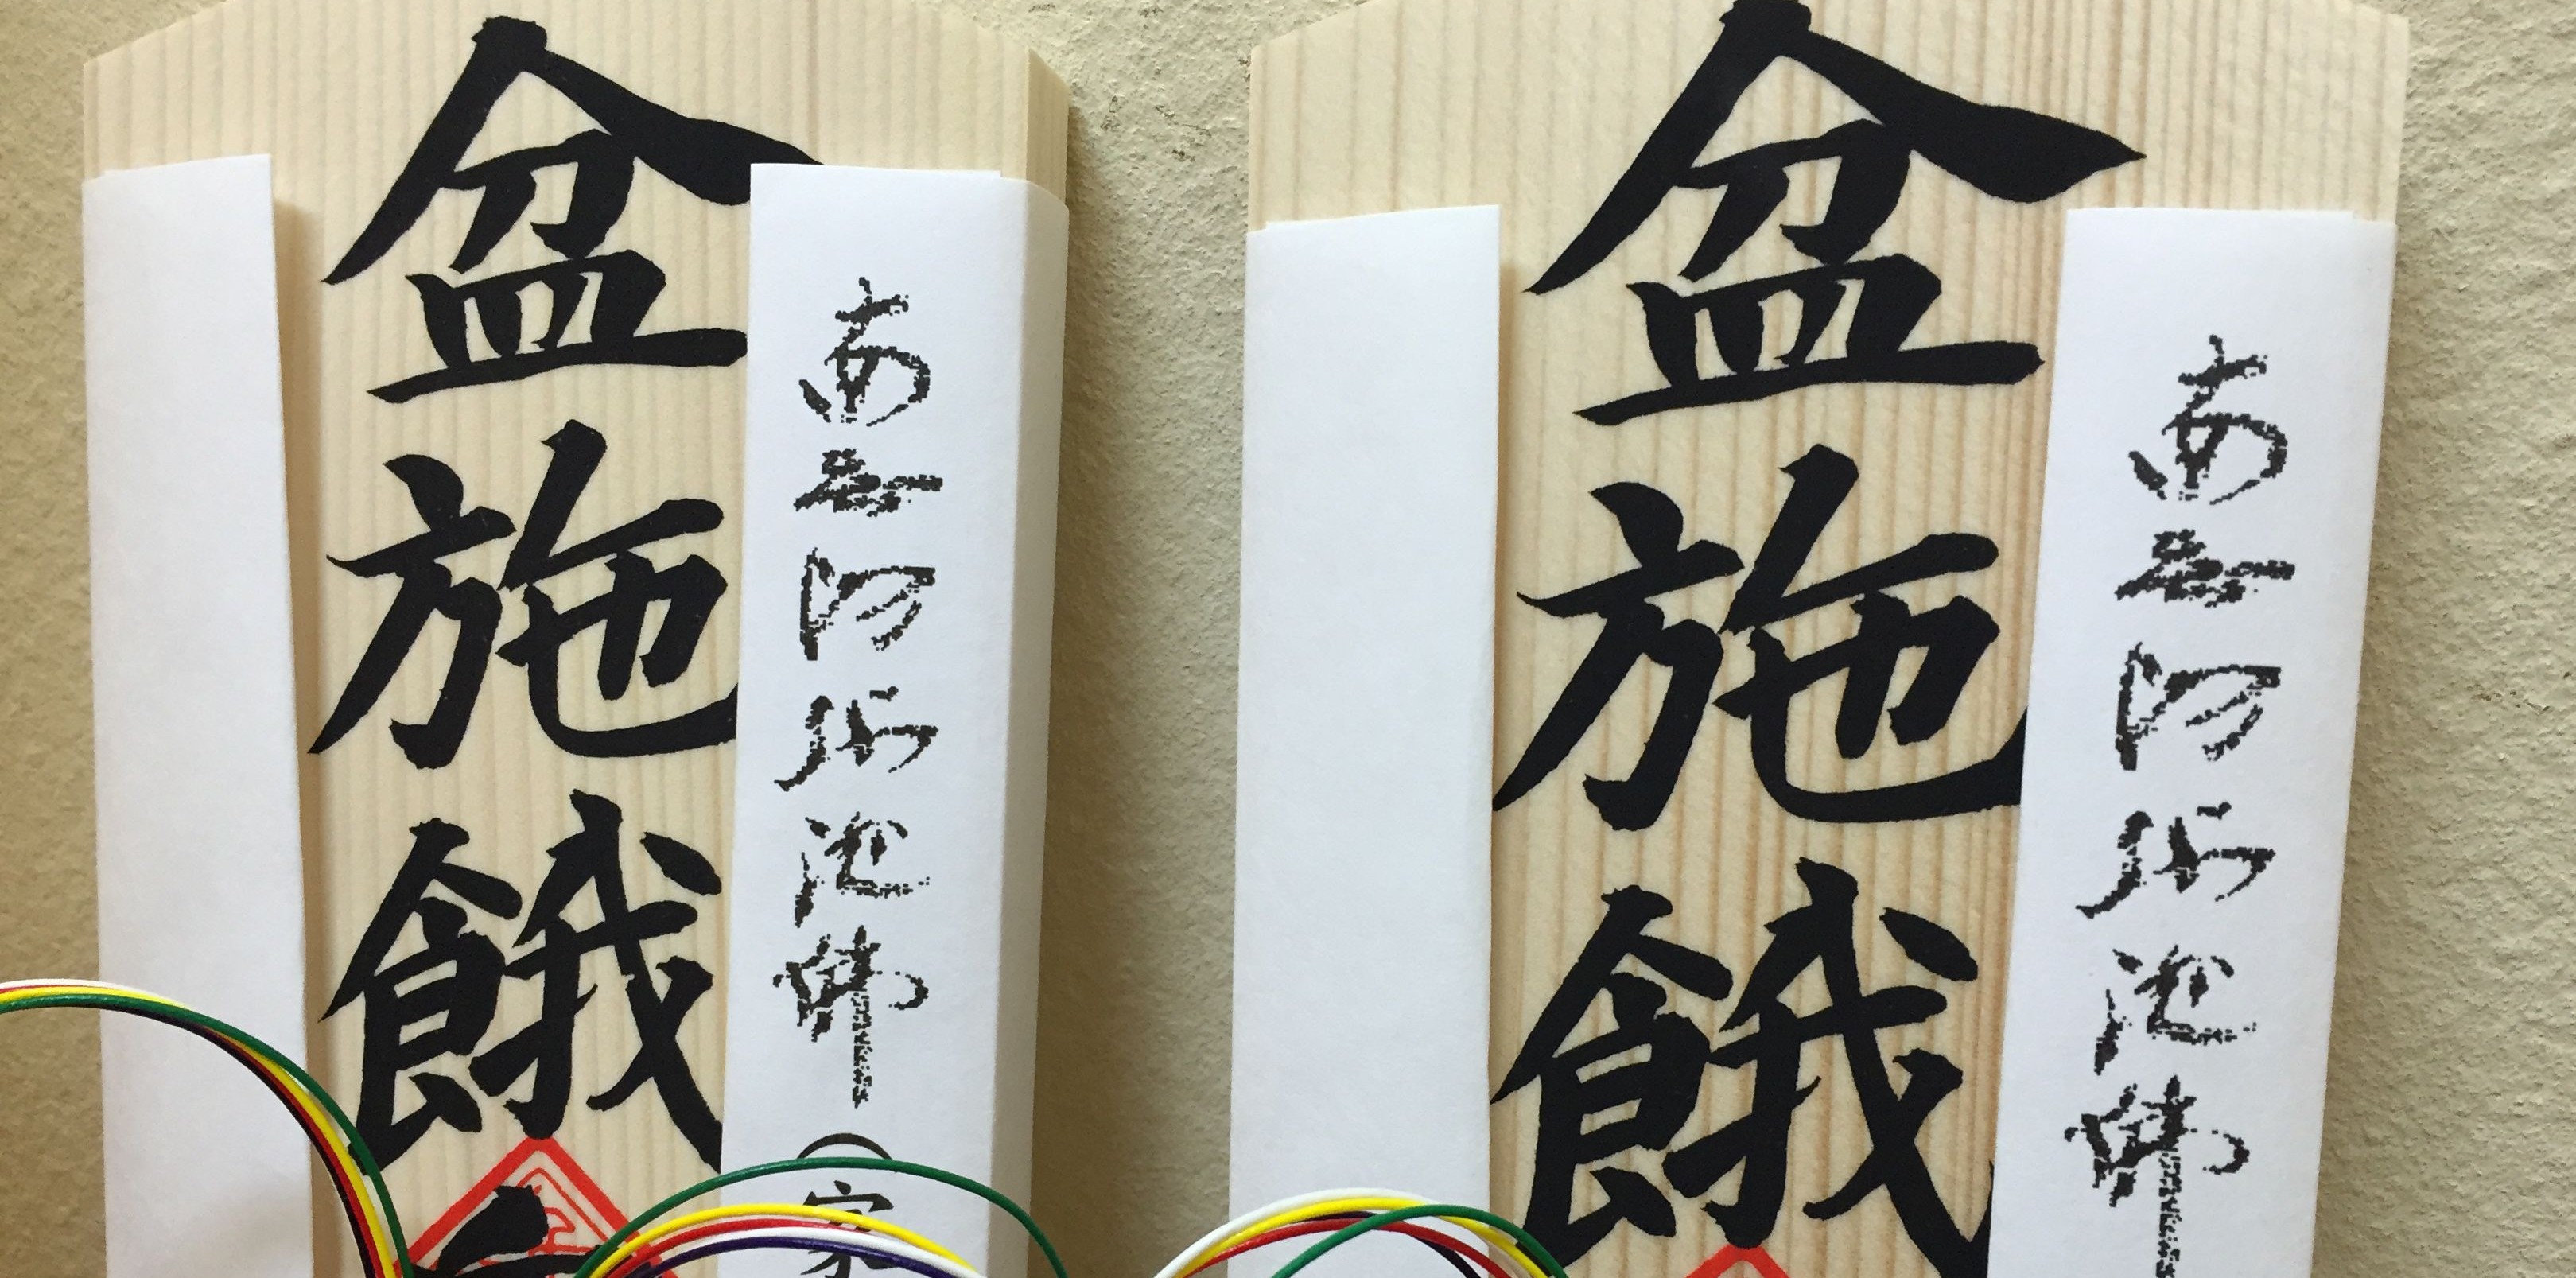 南無阿弥陀佛
盆施餓
南無阿弥陀佛（家
盆施餓